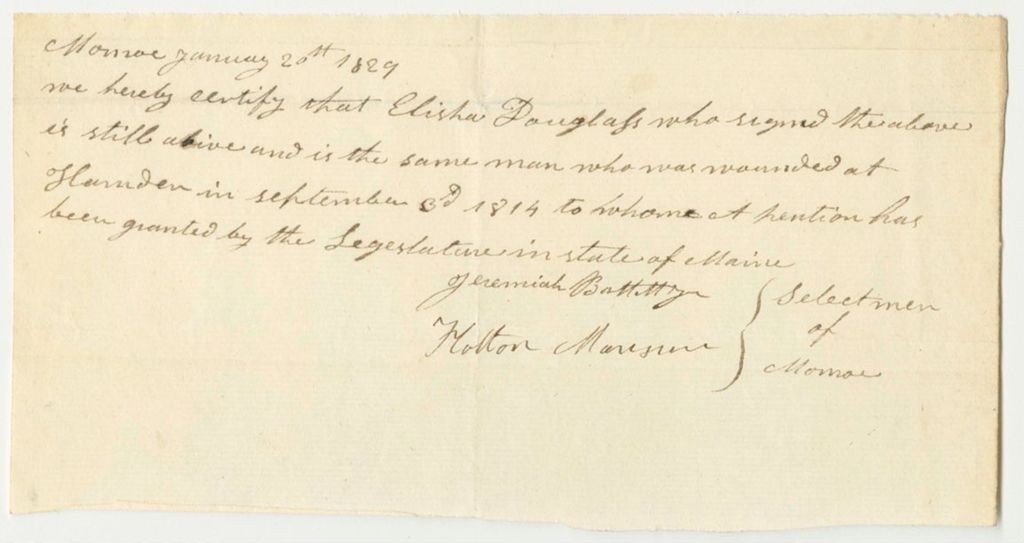 Monroe January 20th 1829
we hereby certify that Elisha Douglass who signed the above
is still alive and is the same man who was wounded at
Hamden in september 3d 1814 to whome A pention has
been granted by the Legeslature in state of Maine
Jeremiah } Selectmen
of
Holton Monroe